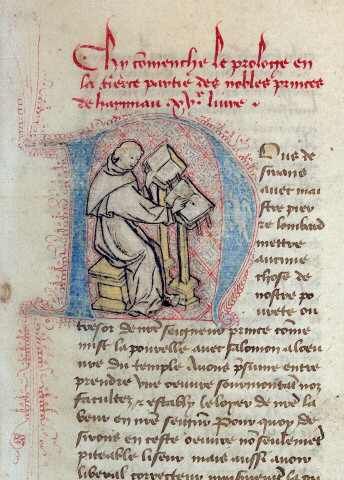 Chy comenche le prologe en
la tierce partie des nobles princes
de haynnau livre
ous de
sirans
avec mai
stre pier
re lombard
mettre
aucune
chose de
nostre po
vrete ou
tresor de nre seigneur prince come
mist la povrelle avec salomon a loeu
vre du temple Avons psume entre
prendre Une oeuvre sourmontat noz
facultez establÿ le loyer de nre la
beur en nre seigneur Pour quoy de
sirons en ceste oeuvre no seulemet
piteable liseur mais aussi avoir
liberal correcteur